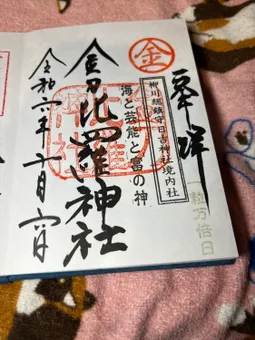 奉拝
金
柳川總鎮守日吉神社境内社
一粒万倍日
海と芸能と富の神
金刀比羅神社
令和六年